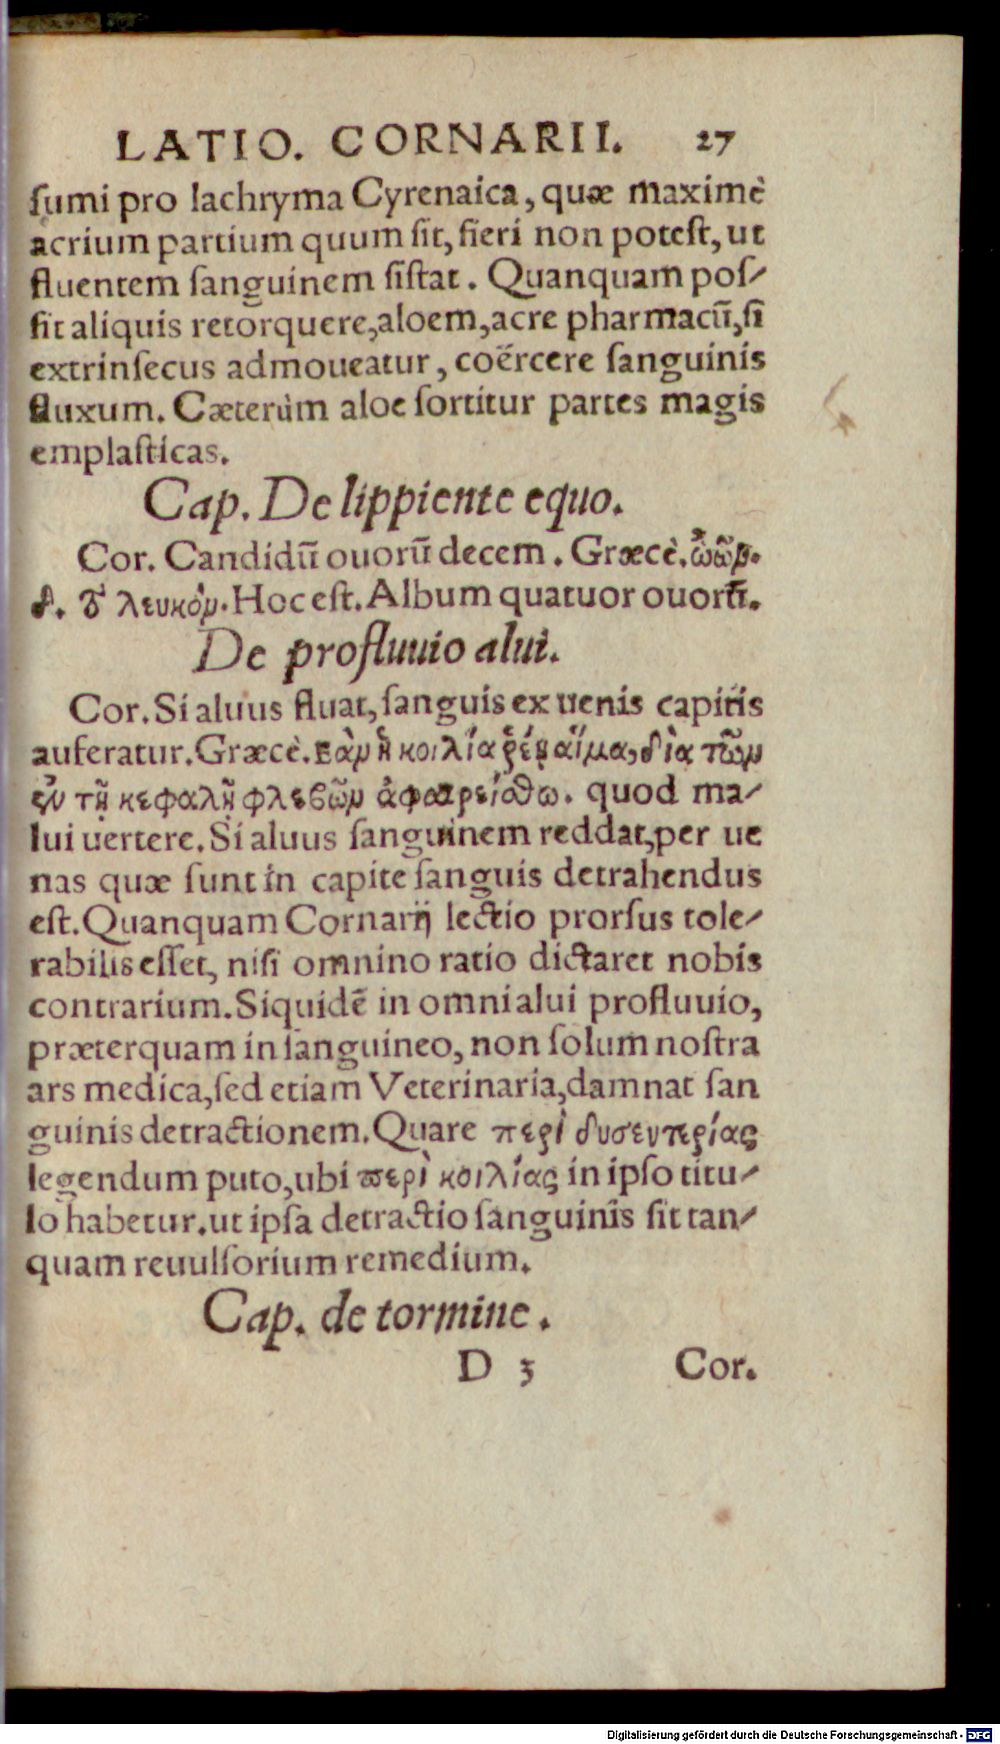 LATIO. CORNARII. 27
ſumi pro lachryma Cyrenaica, quæ maximè
acrium partium quum ſit, fieri non poteſt, ut
fluentem ſanguinem ſiſtat. Quanquam poſ-
ſit aliquis retorquere, aloem, acre pharmacū, ſi
extrinſecus admoueatur, coërcere ſanguinis
fluxum. Cæterùm aloe ſortitur partes magis
emplaſticas.
Cap. De lippiente equo.
Cor. Candidū ouorū decem. Græcè. ὠῶν.
δ. τὸ λευκόν. Hoc eſt. Album quatuor ouorū.
De profluuio alui.
Cor. Si aluus fluat, ſanguis ex uenis capitis
auferatur. Græcè. ἐὰν ἡ κοιλία ῥέῃ αἷμα, διὰ τῶν
ἐν τῇ κεφαλῇ φλεβῶν ἀφαιρείσθω. quod ma-
lui uertere. Si aluus ſanguinem reddat, per ue
nas quæ ſunt in capite ſanguis detrahendus
eſt. Quanquam Cornarij lectio prorſus tole-
rabilis eſſet, niſi omnino ratio dictaret nobis
contrarium. Siquidē in omni alui profluuio,
præterquam in ſanguineo, non ſolum noſtra
ars medica, ſed etiam Veterinaria, damnat ſan
guinis detractionem. Quare περὶ δυσεντερίας
legendum puto, ubi περὶ κοιλίας in ipſo titu-
lo habetur. ut ipſa detractio ſanguinis ſit tan-
quam reuulſorium remedium.
Cap. de tormine.
D 3 Cor.
Digitalisierung gefördert durch die Deutsche Forschungsgemeinschaft - DFG